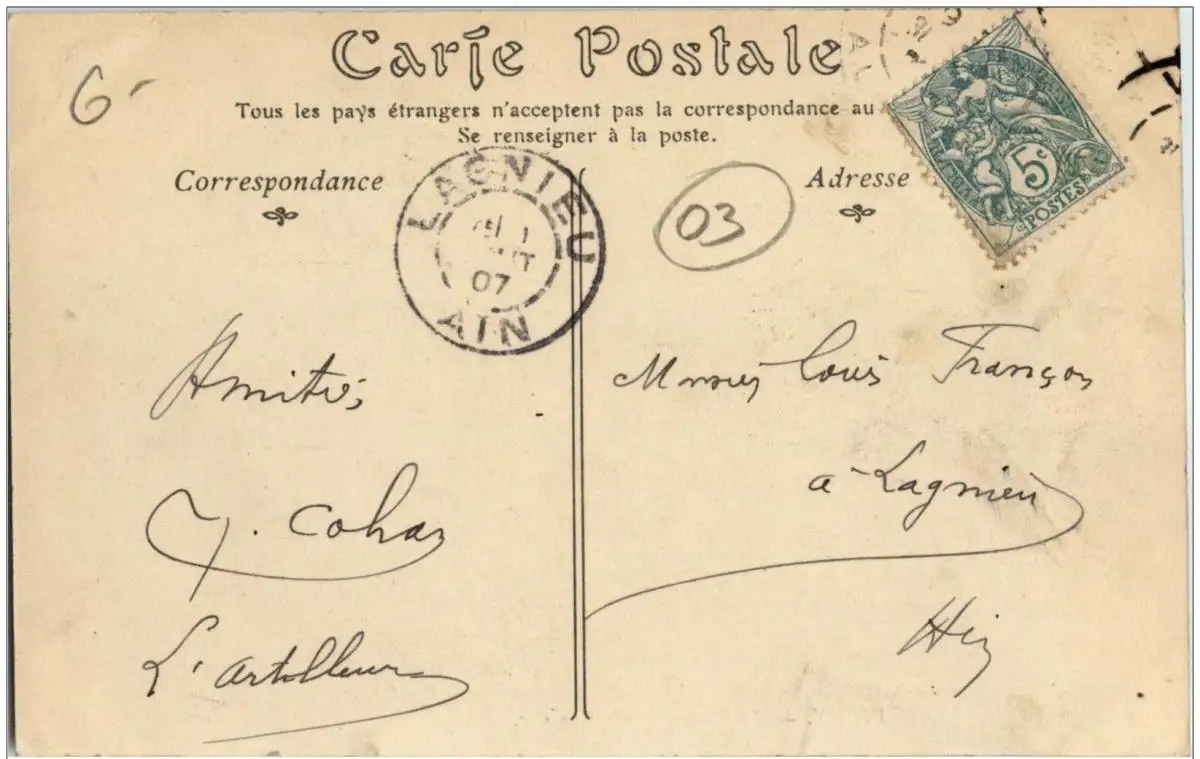 Carte Postale
6-
Tous les pays étrangers n'acceptent pas la correspondance au
Se renseigner à la poste.
Correspondance
Adresse
LAGNIEU
07
AIN
03
5c
POSTES
Amitiés
J. Cohas
L'artilleur
Monsieur Louis François
à Lagnieu
Ain